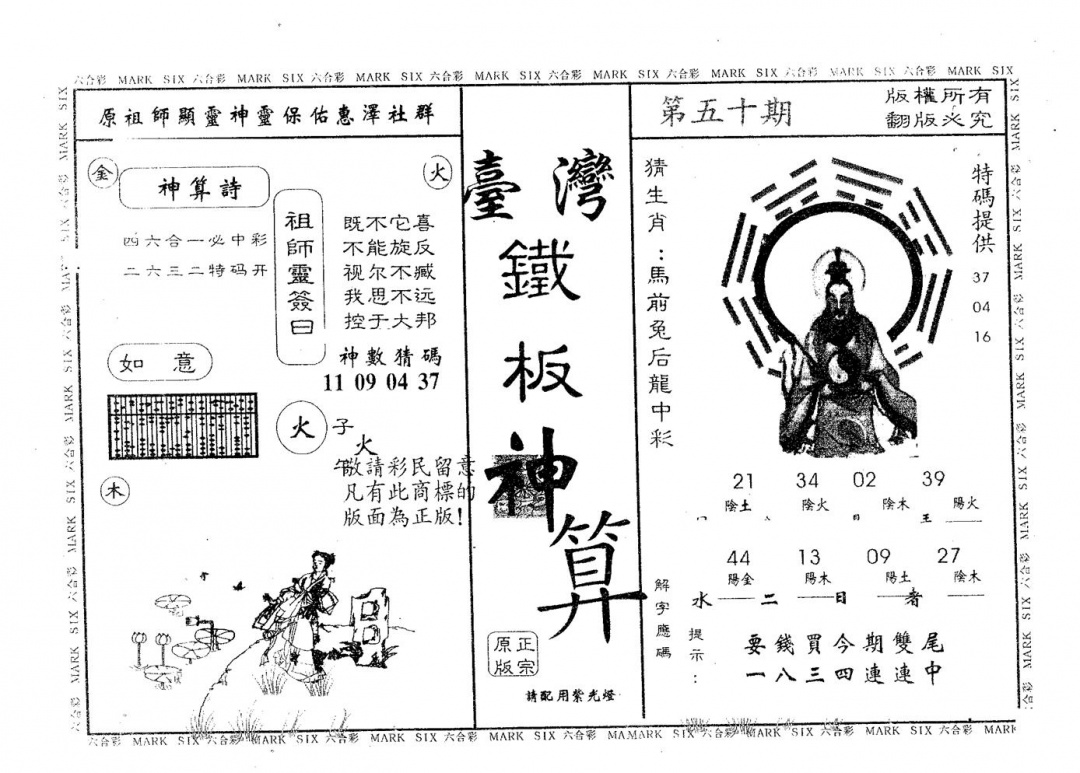 六合彩 MARK SIX 六合彩 MARK SIX 六合彩 MARK SIX 六合彩 MARK SIX 六合彩 MARK SIX 六合彩 MARK SIX 六合彩 MARK SIX 六合彩 MARK SIX
原祖師顯靈神靈保佑惠澤社群
金
火
神算詩
四六合一必中彩
二六三二特码开
祖師靈簽曰
既不它喜
不能旋反
视尔不臧
我思不远
控于大邦
神數猜碼
11 09 04 37
如意
火
子
火
午
敬請彩民留意
凡有此商標的
版面為正版!
木
臺灣
鐵
板
神
算
正宗
原版
請配用紫光燈
第五十期
版權所有
翻版必究
猜生肖:馬前兔后龍中彩
特碼提供
37
04
16
21 34 02 39
陰土 陰火 陰木 陽火
44 13 09 27
陽金 陽木 陽土 陰木
解字應碼
水 二 日 者
提示:
要錢買今期雙尾
一八三四連連中
六合彩 MARK SIX 六合彩 MARK SIX 六合彩 MARK SIX 六合彩 MARK SIX 六合彩 MAMARK SIX 六合彩 MARK SIX 六合彩 MARK SIX 六合彩 MARK